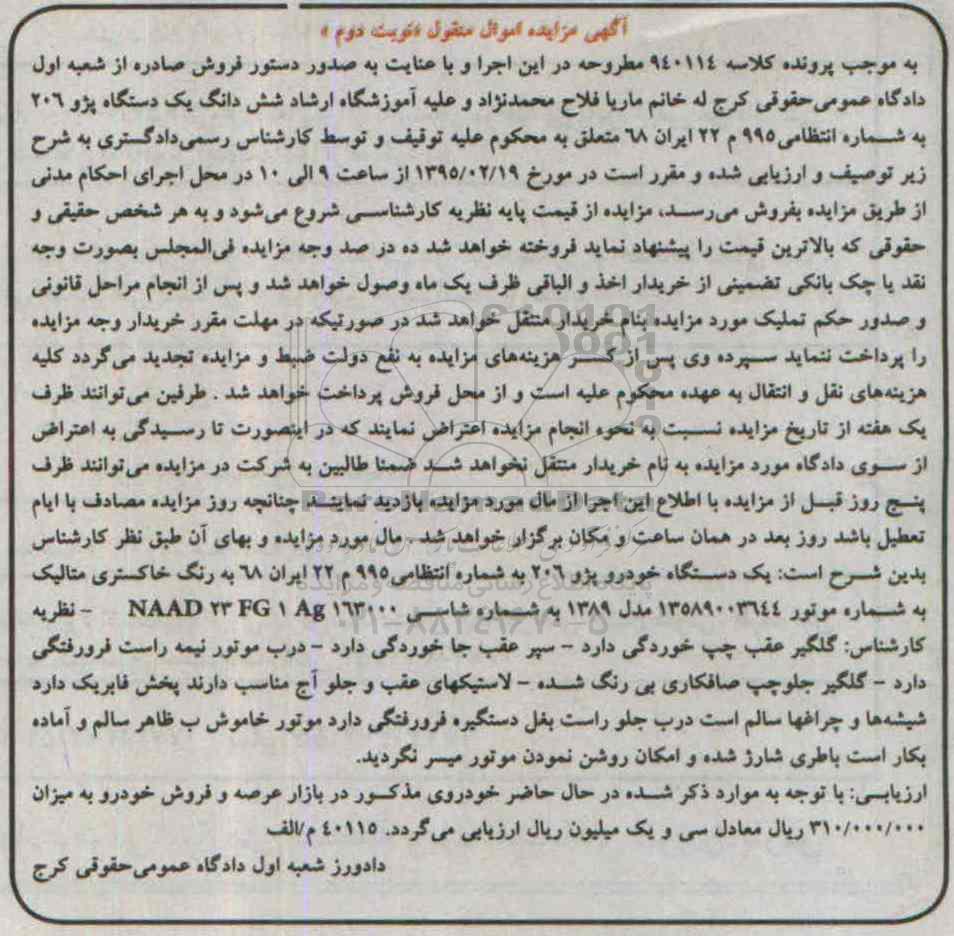 آگهی مزایده اموال منقول «نوبت دوم»
به موجب پرونده کلاسه ۹۴۰۱۱۴ مطروحه در این اجرا و با عنایت به صدور دستور فروش صادره از شعبه اول
دادگاه عمومی‌حقوقی کرج له خانم ماریا فلاح محمدنژاد و علیه آموزشگاه ارشاد شش دانگ یک دستگاه پژو ۲۰۶
به شـــماره انتظامی۹۹۵ م ۲۲ ایران ۶۸ متعلق به محکوم علیه توقیف و توسط کارشناس رسمی‌دادگستری به شرح
زیر توصیف و ارزیابی شده و مقرر است در مورخ ۱۳۹۵/۰۲/۱۹ از ساعت ۹ الی ۱۰ در محل اجرای احکام مدنی
از طریق مزایده بفروش می‌رســد، مزایده از قیمت پایه نظریه کارشناســی شروع می‌شود و به هر شخص حقیقی و
حقوقی که بالاترین قیمت را پیشنهاد نماید فروخته خواهد شد ده در صد وجه مزایده فی‌المجلس بصورت وجه
نقد یا چک بانکی تضمینی از خریدار اخذ و الباقی ظرف یک ماه وصول خواهد شد و پس از انجام مراحل قانونی
و صدور حکم تملیک مورد مزایده بنام خریدار منتقل خواهد شد در صورتیکه در مهلت مقرر خریدار وجه مزایده
را پرداخت ننماید ســپرده وی پس از کســر هزینه‌های مزایده به نفع دولت ضبط و مزایده تجدید می‌گردد کلیه
هزینه‌های نقل و انتقال به عهده محکوم علیه است و از محل فروش پرداخت خواهد شد . طرفین می‌توانند ظرف
یک هفته از تاریخ مزایده نســبت به نحوه انجام مزایده اعتراض نمایند که در اینصورت تا رســیدگی به اعتراض
از ســوی دادگاه مورد مزایده به نام خریدار منتقل نخواهد شــد ضمنا طالبین به شرکت در مزایده می‌توانند ظرف
پنــج روز قبــل از مزایده با اطلاع این اجرا از مال مورد مزایده بازدید نماینــد چنانچه روز مزایده مصادف با ایام
تعطیل باشد روز بعد در همان ساعت و مکان برگزار خواهد شد . مال مورد مزایده و بهای آن طبق نظر کارشناس
بدین شــرح است: یک دســتگاه خودرو پژو ۲۰۶ به شماره انتظامی۹۹۵ م ۲۲ ایران ۶۸ به رنگ خاکستری متالیک
به شــماره موتور ۱۳۵۸۹۰۰۳۶۴۴ مدل ۱۳۸۹ به شــماره شاســی NAAD ۲۳ FG ۱ Ag ۱۶۳۰۰۰ – نظریه
کارشناس: گلگیر عقب چپ خوردگی دارد – سپر عقب جا خوردگی دارد – درب موتور نیمه راست فرورفتگی
دارد – گلگیر جلوچپ صافکاری بی رنگ شــده – لاستیکهای عقب و جلو آج مناسب دارند پخش فابریک دارد
شیشه‌ها و چراغها سالم است درب جلو راست بغل دستگیره فرورفتگی دارد موتور خاموش ب ظاهر سالم و آماده
بکار است باطری شارژ شده و امکان روشن نمودن موتور میسر نگردید.
ارزیابــی: با توجه به موارد ذکر شــده در حال حاضر خودروی مذکــور در بازار عرضه و فروش خودرو به میزان
۳۱۰/۰۰۰/۰۰۰ ریال معادل سی و یک میلیون ریال ارزیابی می‌گردد. ۴۰۱۱۵ م/الف
دادورز شعبه اول دادگاه عمومی‌حقوقی کرج